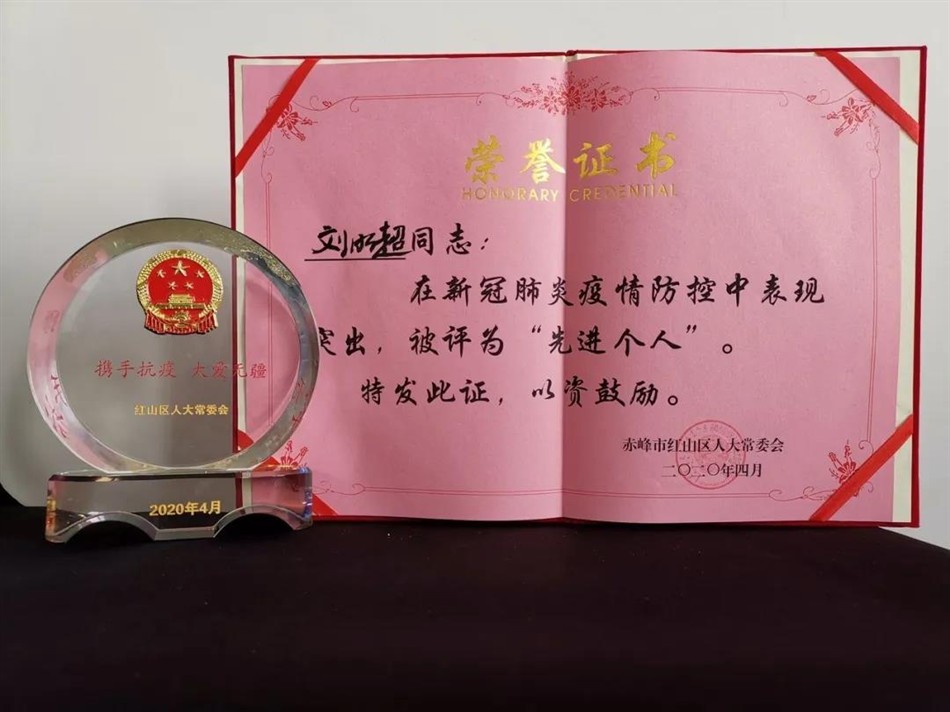 携手抗疫 大爱无疆
红山区人大常委会
2020年4月
荣誉证书
HONORARY CREDENTIAL
刘明超同志：
在新冠肺炎疫情防控中表现
突出，被评为“先进个人”。
特发此证，以资鼓励。
赤峰市红山区人大常委会
二〇二〇年四月